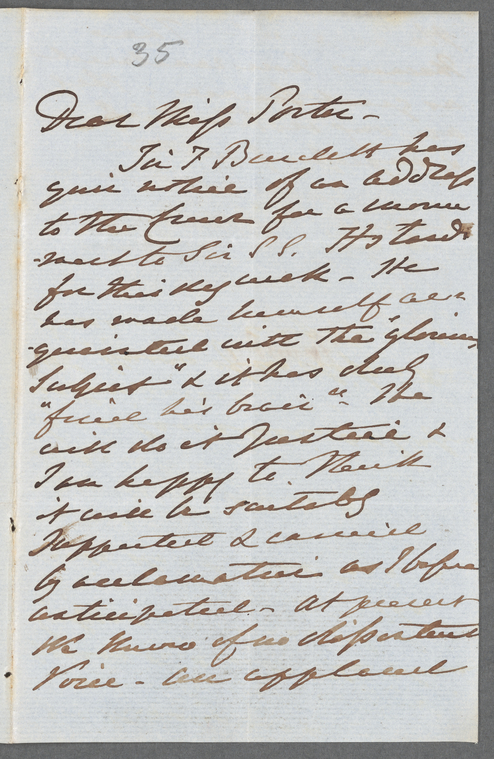 35
Dear Miss Porter -
Sir F Burdett has
given notice of an address
to the Crown for a monu
-ment to Sir S S. It stands
for this day week - He
has made himself ac-
quainted with the "glorious
Subject" & it has duly
"fired his brain". He
will do it Justice &
I am happy to think
it will be suitably
Supported & carried
by acclamation as I before
anticipated - At present
We know of no dissentient
Voice - all applaud